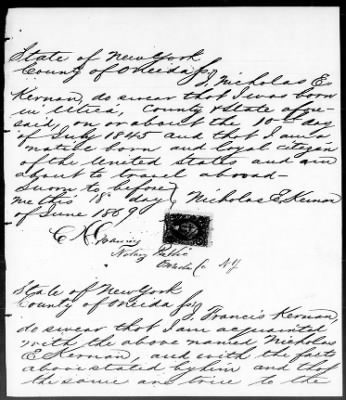 State of New York
County of Oneida ss
I, Nicholas E.
Kernan, do swear that I was born
in Utica, County & State afore-
said, on or about the 10th day
of July 1845 and that I am a
native born and loyal citizen
of the United States and am
about to travel abroad—
Sworn to before
me this 18 day Nicholas E. Kernan
of June 1869
Notary Public
Oneida Co N.Y.
State of New York
County of Oneida ss
I, Francis Kernan,
do swear that I am acquainted
with the above named Nicholas
E. Kernan, and with the facts
above stated by him and that
the same are true to the